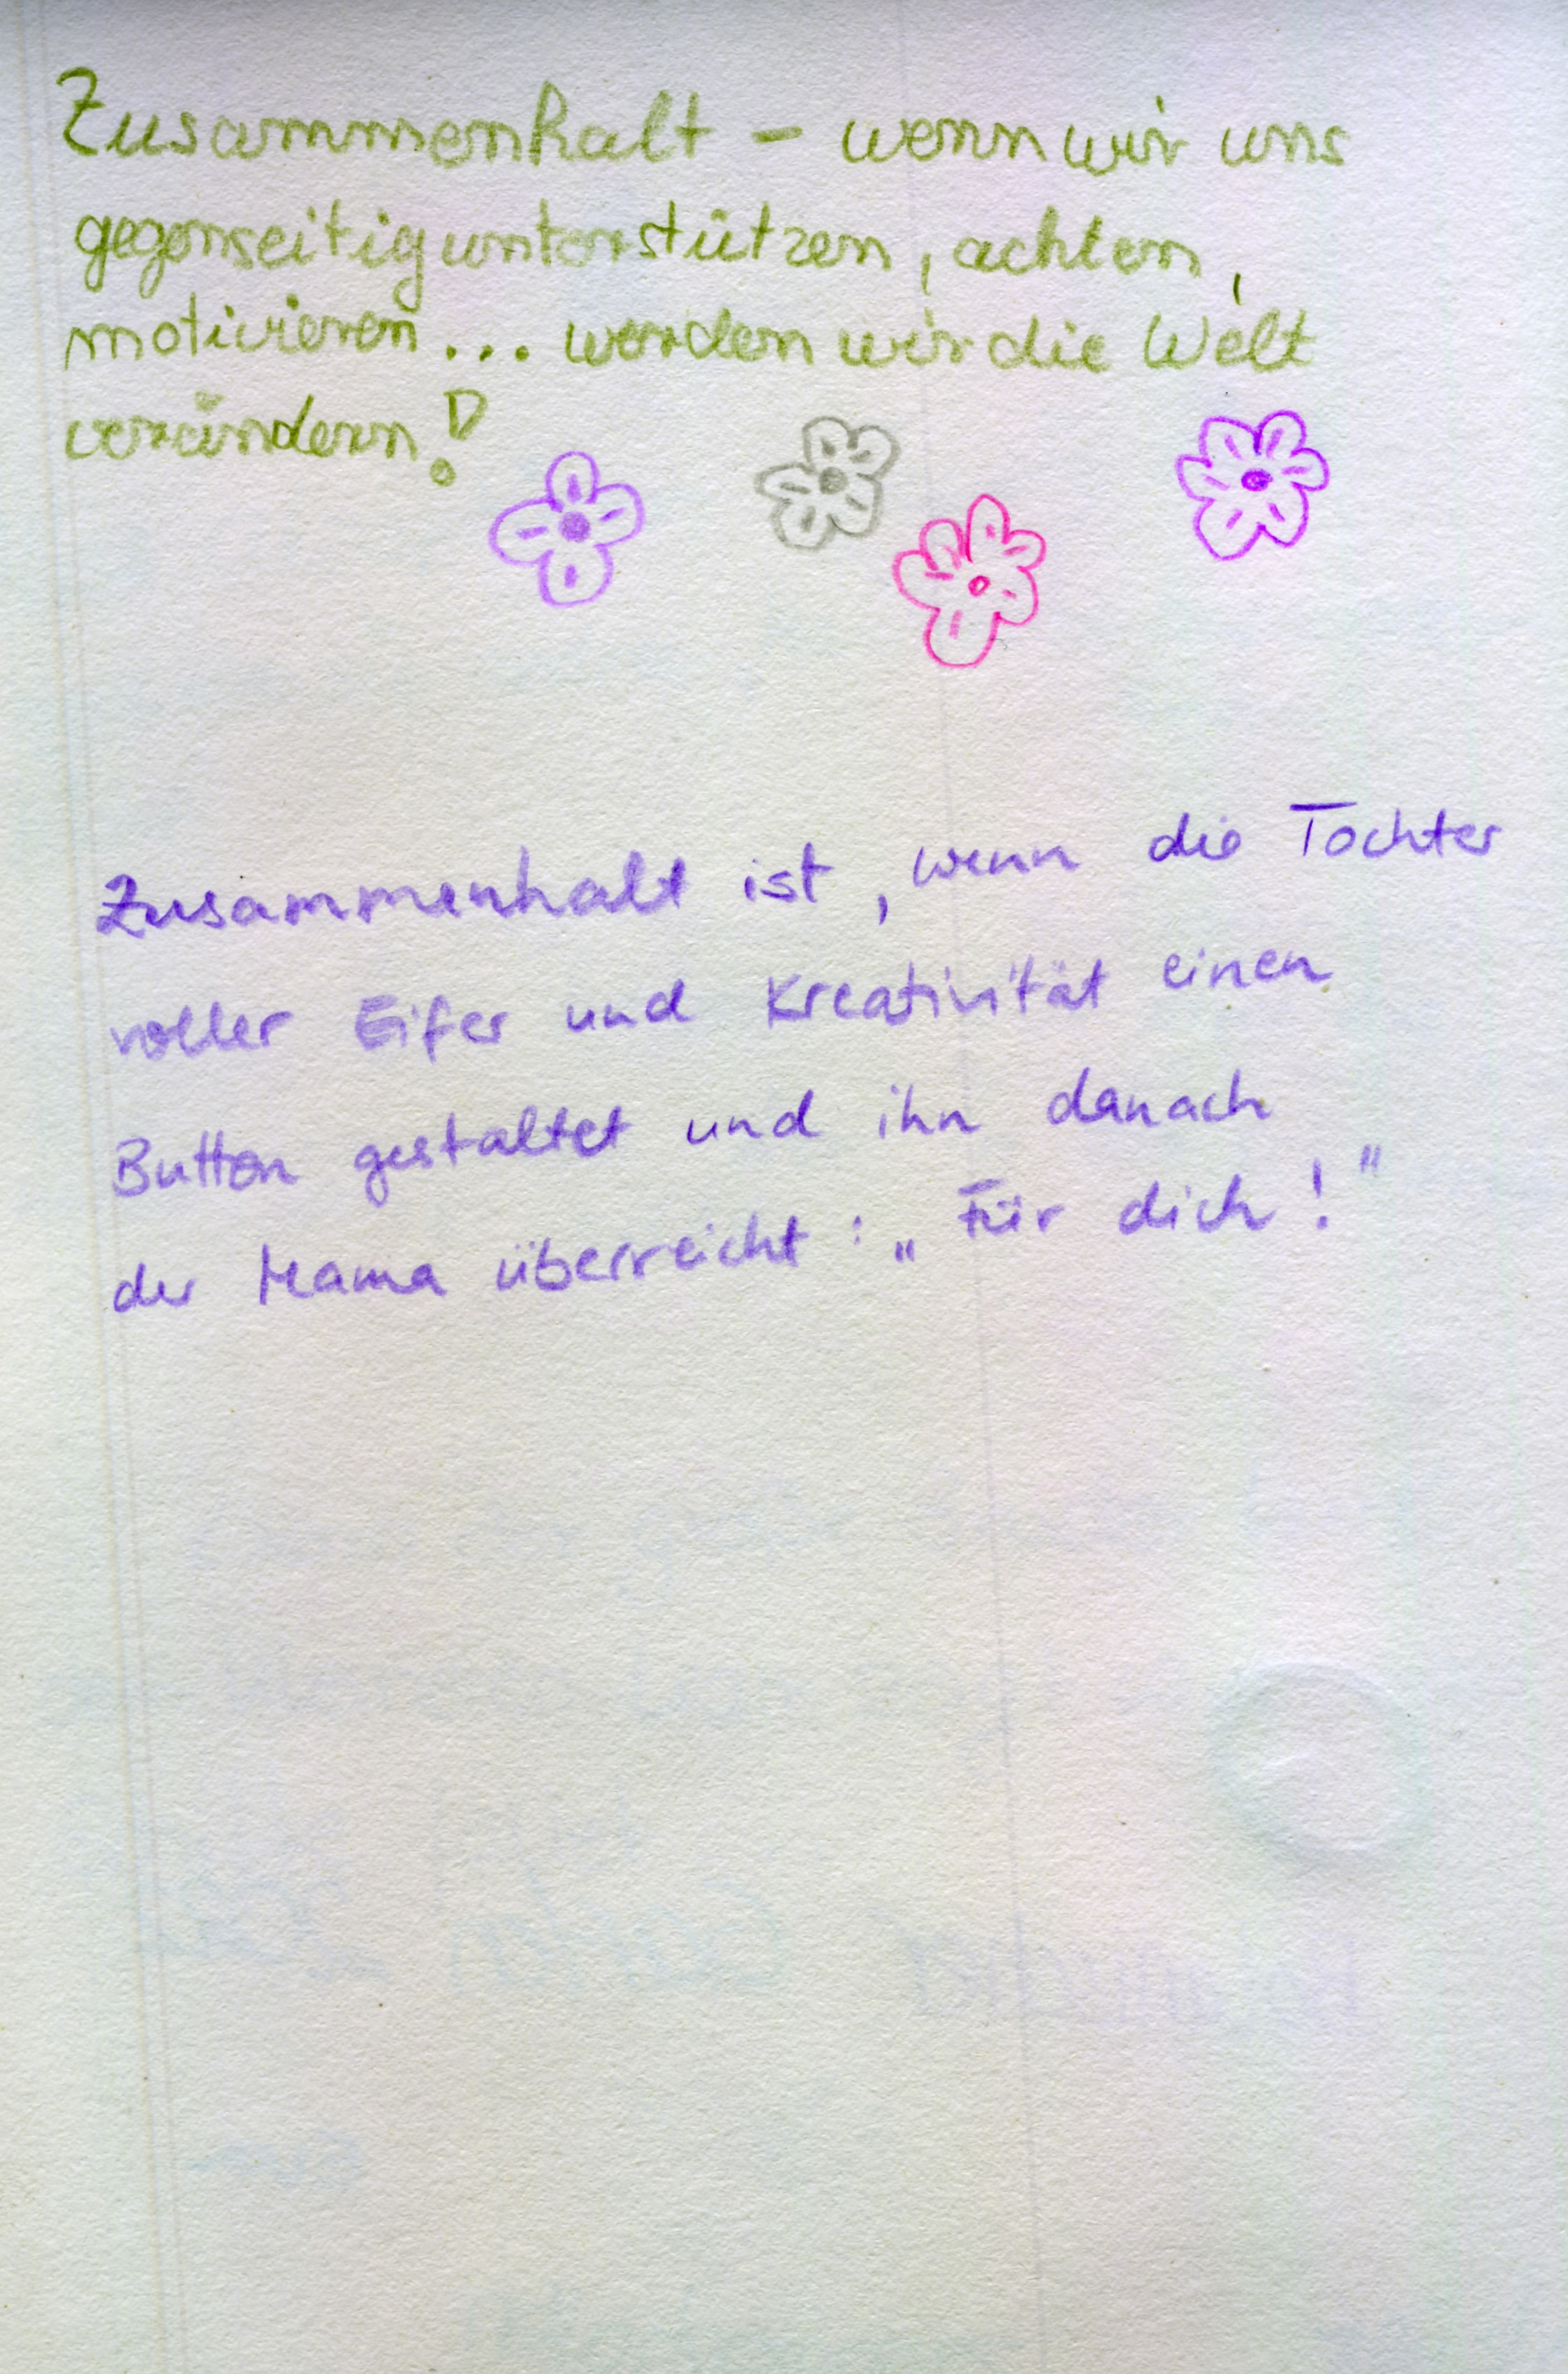 Zusammenhalt - wenn wir uns
gegenseitig unterstützen, achten,
motivieren... werden wir die Welt
verändern!
Zusammenhalt ist, wenn die Tochter
voller Eifer und Kreativität einen
Button gestaltet und ihn danach
der Mama überreicht: „Für dich!"